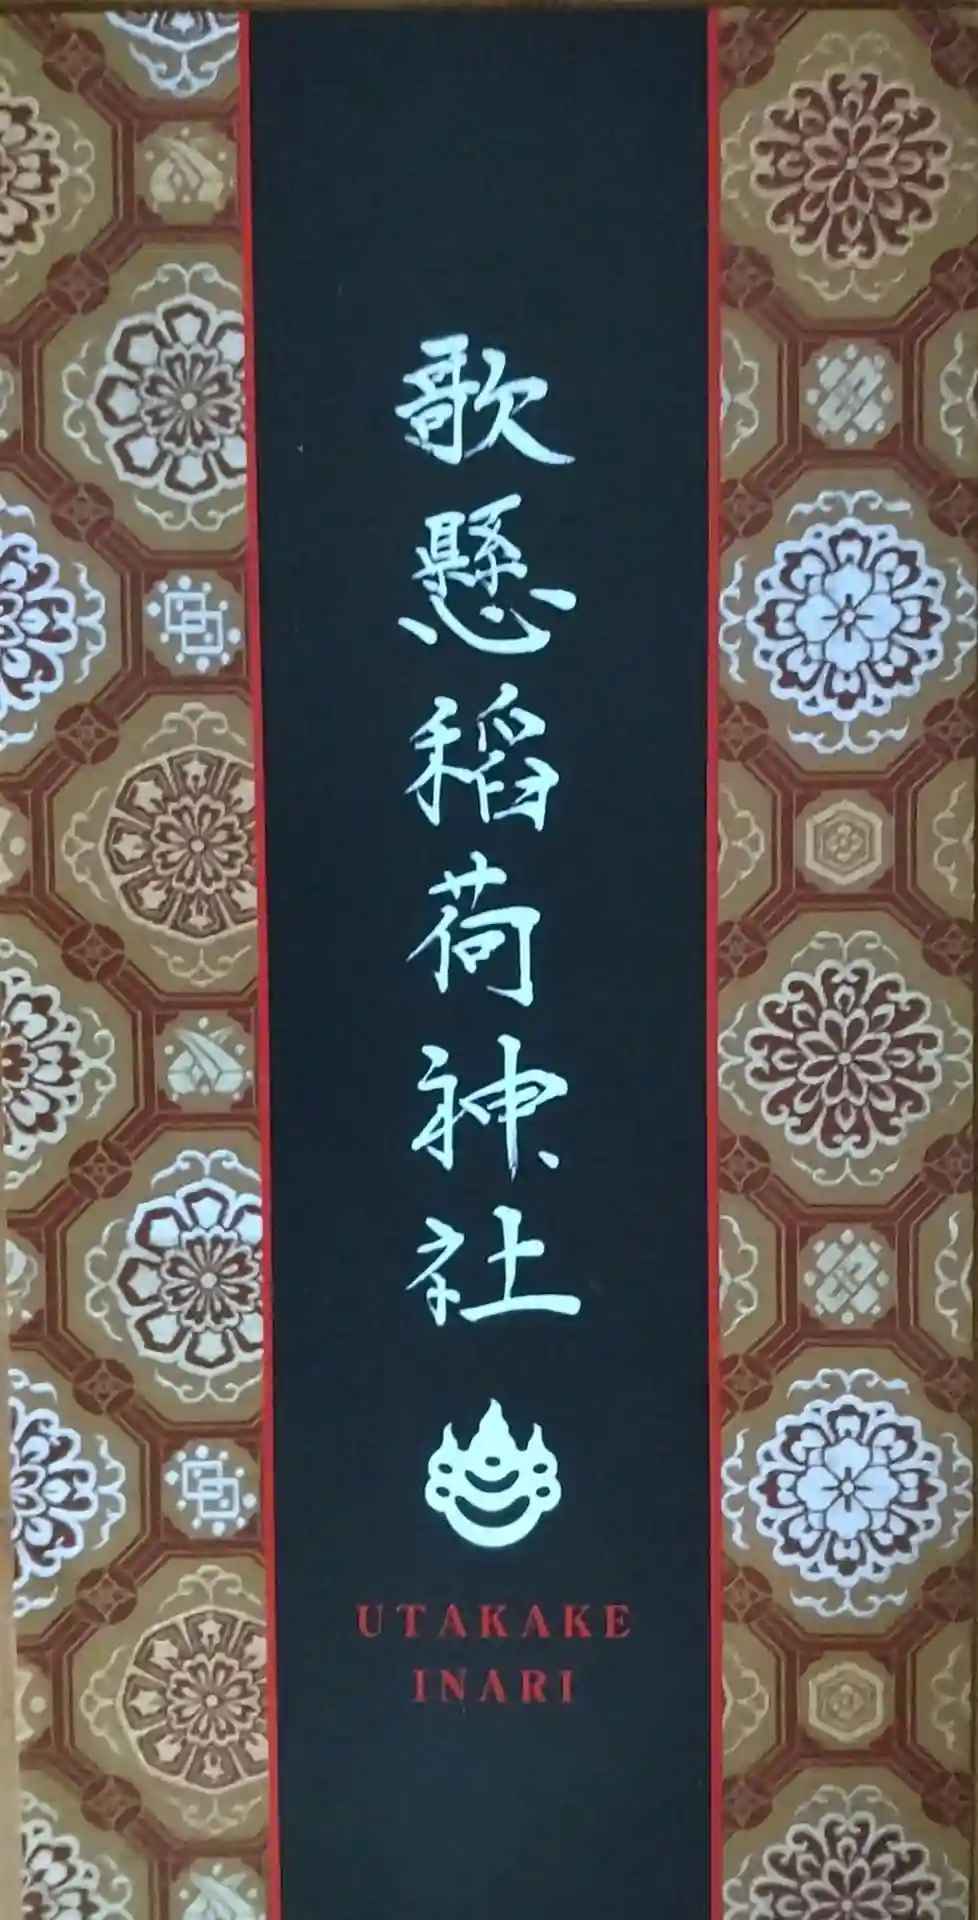 歌懸稲荷神社
UTAKAKE
INARI